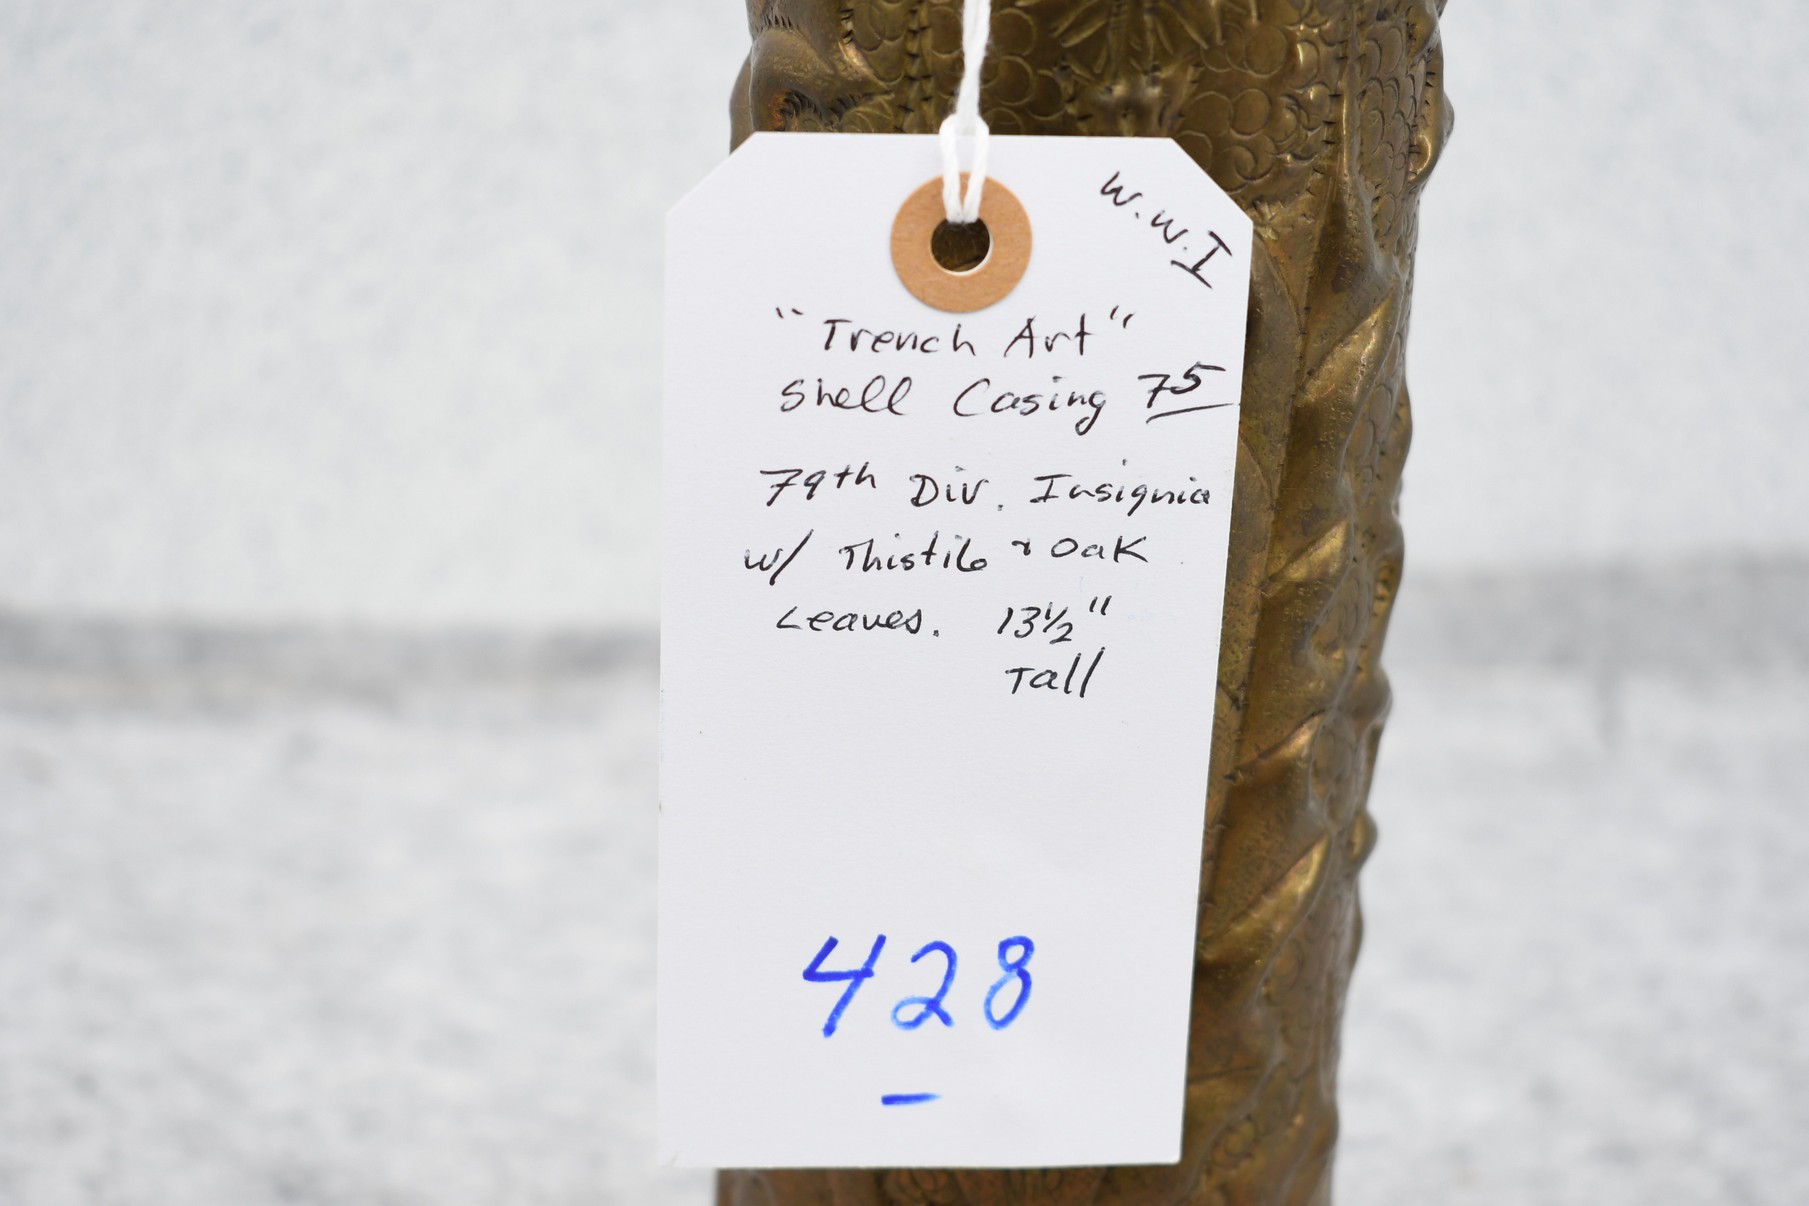 W.W.I
"Trench Art"
Shell Casing 75
79th Div. Insignia
w/ Thistle & Oak
Leaves. 13½"
Tall
428